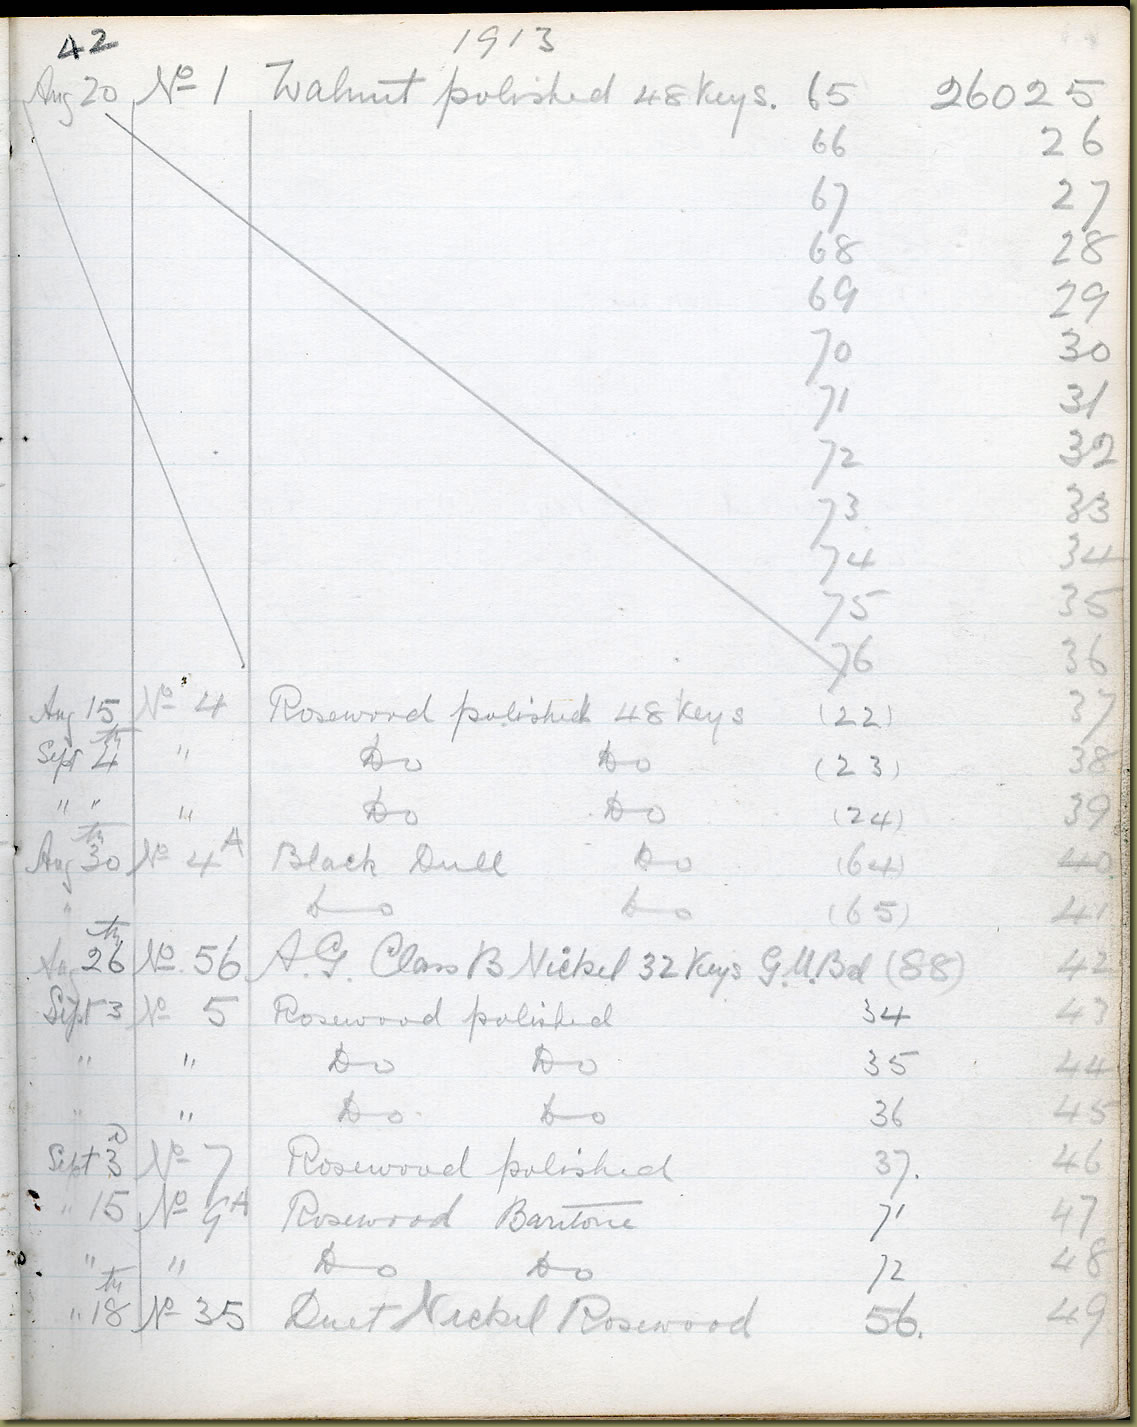 42 1913
Aug 20 No 1 Walnut polished 48 Keys. 65 26025
66 26
67 27
68 28
69 29
70 30
71 31
72 32
73 33
74 34
75 35
76 36
Aug 15 No 4 Rosewood polished 48 Keys (22) 37
Sept 4th " Do Do (23) 38
" " " Do Do (24) 39
Aug 30th No 4A Black Dull Do (64) 40
" Do Do (65) 41
Aug 26th No. 56 A.G. Class B Nickel 32 Keys G.U.Bd (88) 42
Sept 3 No 5 Rosewood polished 34 43
" " Do Do 35 44
" " Do Do 36 45
Sept 3d No 7 Rosewood polished 37. 46
" 15 No 9A Rosewood Baritone 71 47
" " Do Do 72 48
" 18th No 35 Duet Nickel Rosewood 56. 49